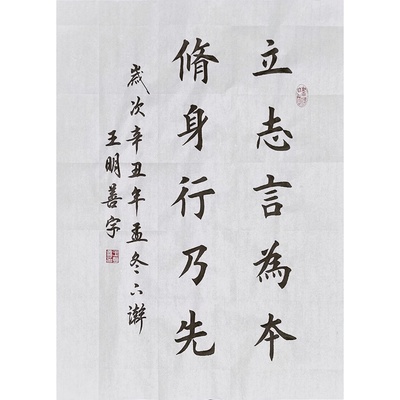 立志言為本
脩身行乃先
歲次辛丑年孟冬下澣
王明善